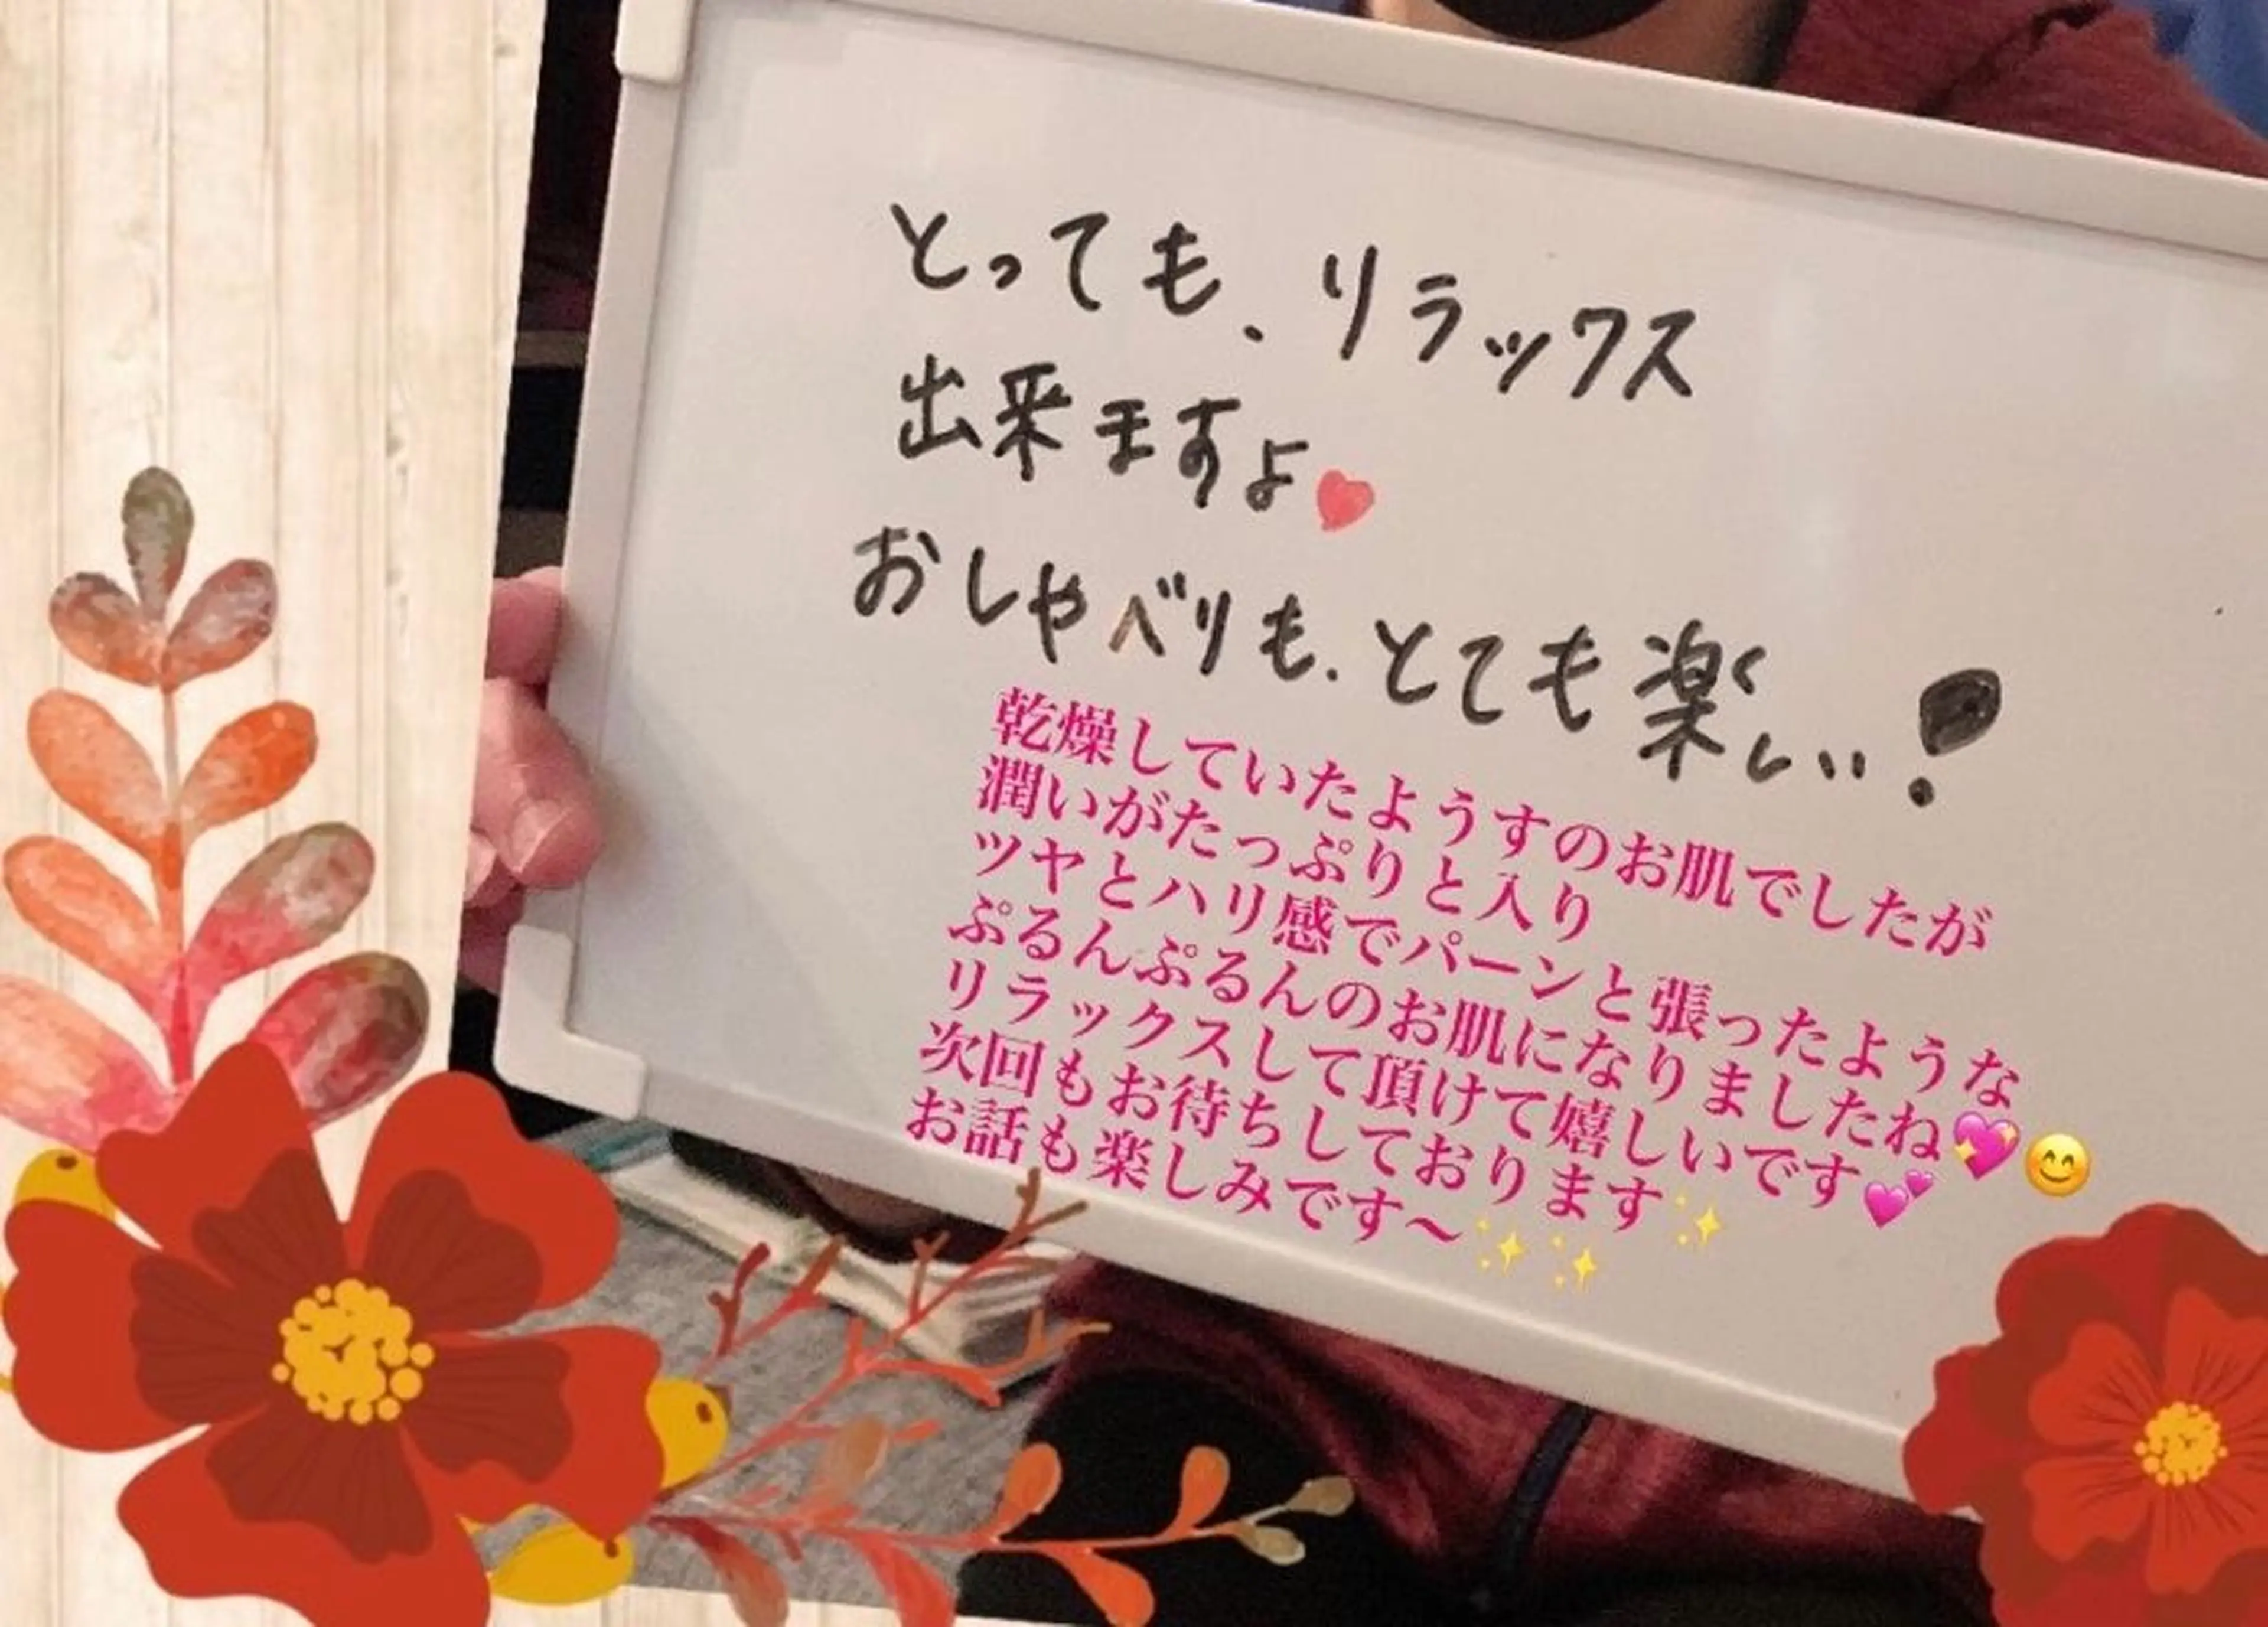 とっても、リラックス
出来ますよ❤
おしゃべりも、とても楽しい!
乾燥していたようすのお肌でしたが
潤いがたっぷりと入り
ツヤとハリ感でパーンと張ったような
ぷるんぷるんのお肌になりましたね💖😊
リラックスして頂けて嬉しいです💕
次回もお待ちしております✨
お話も楽しみです〜✨✨